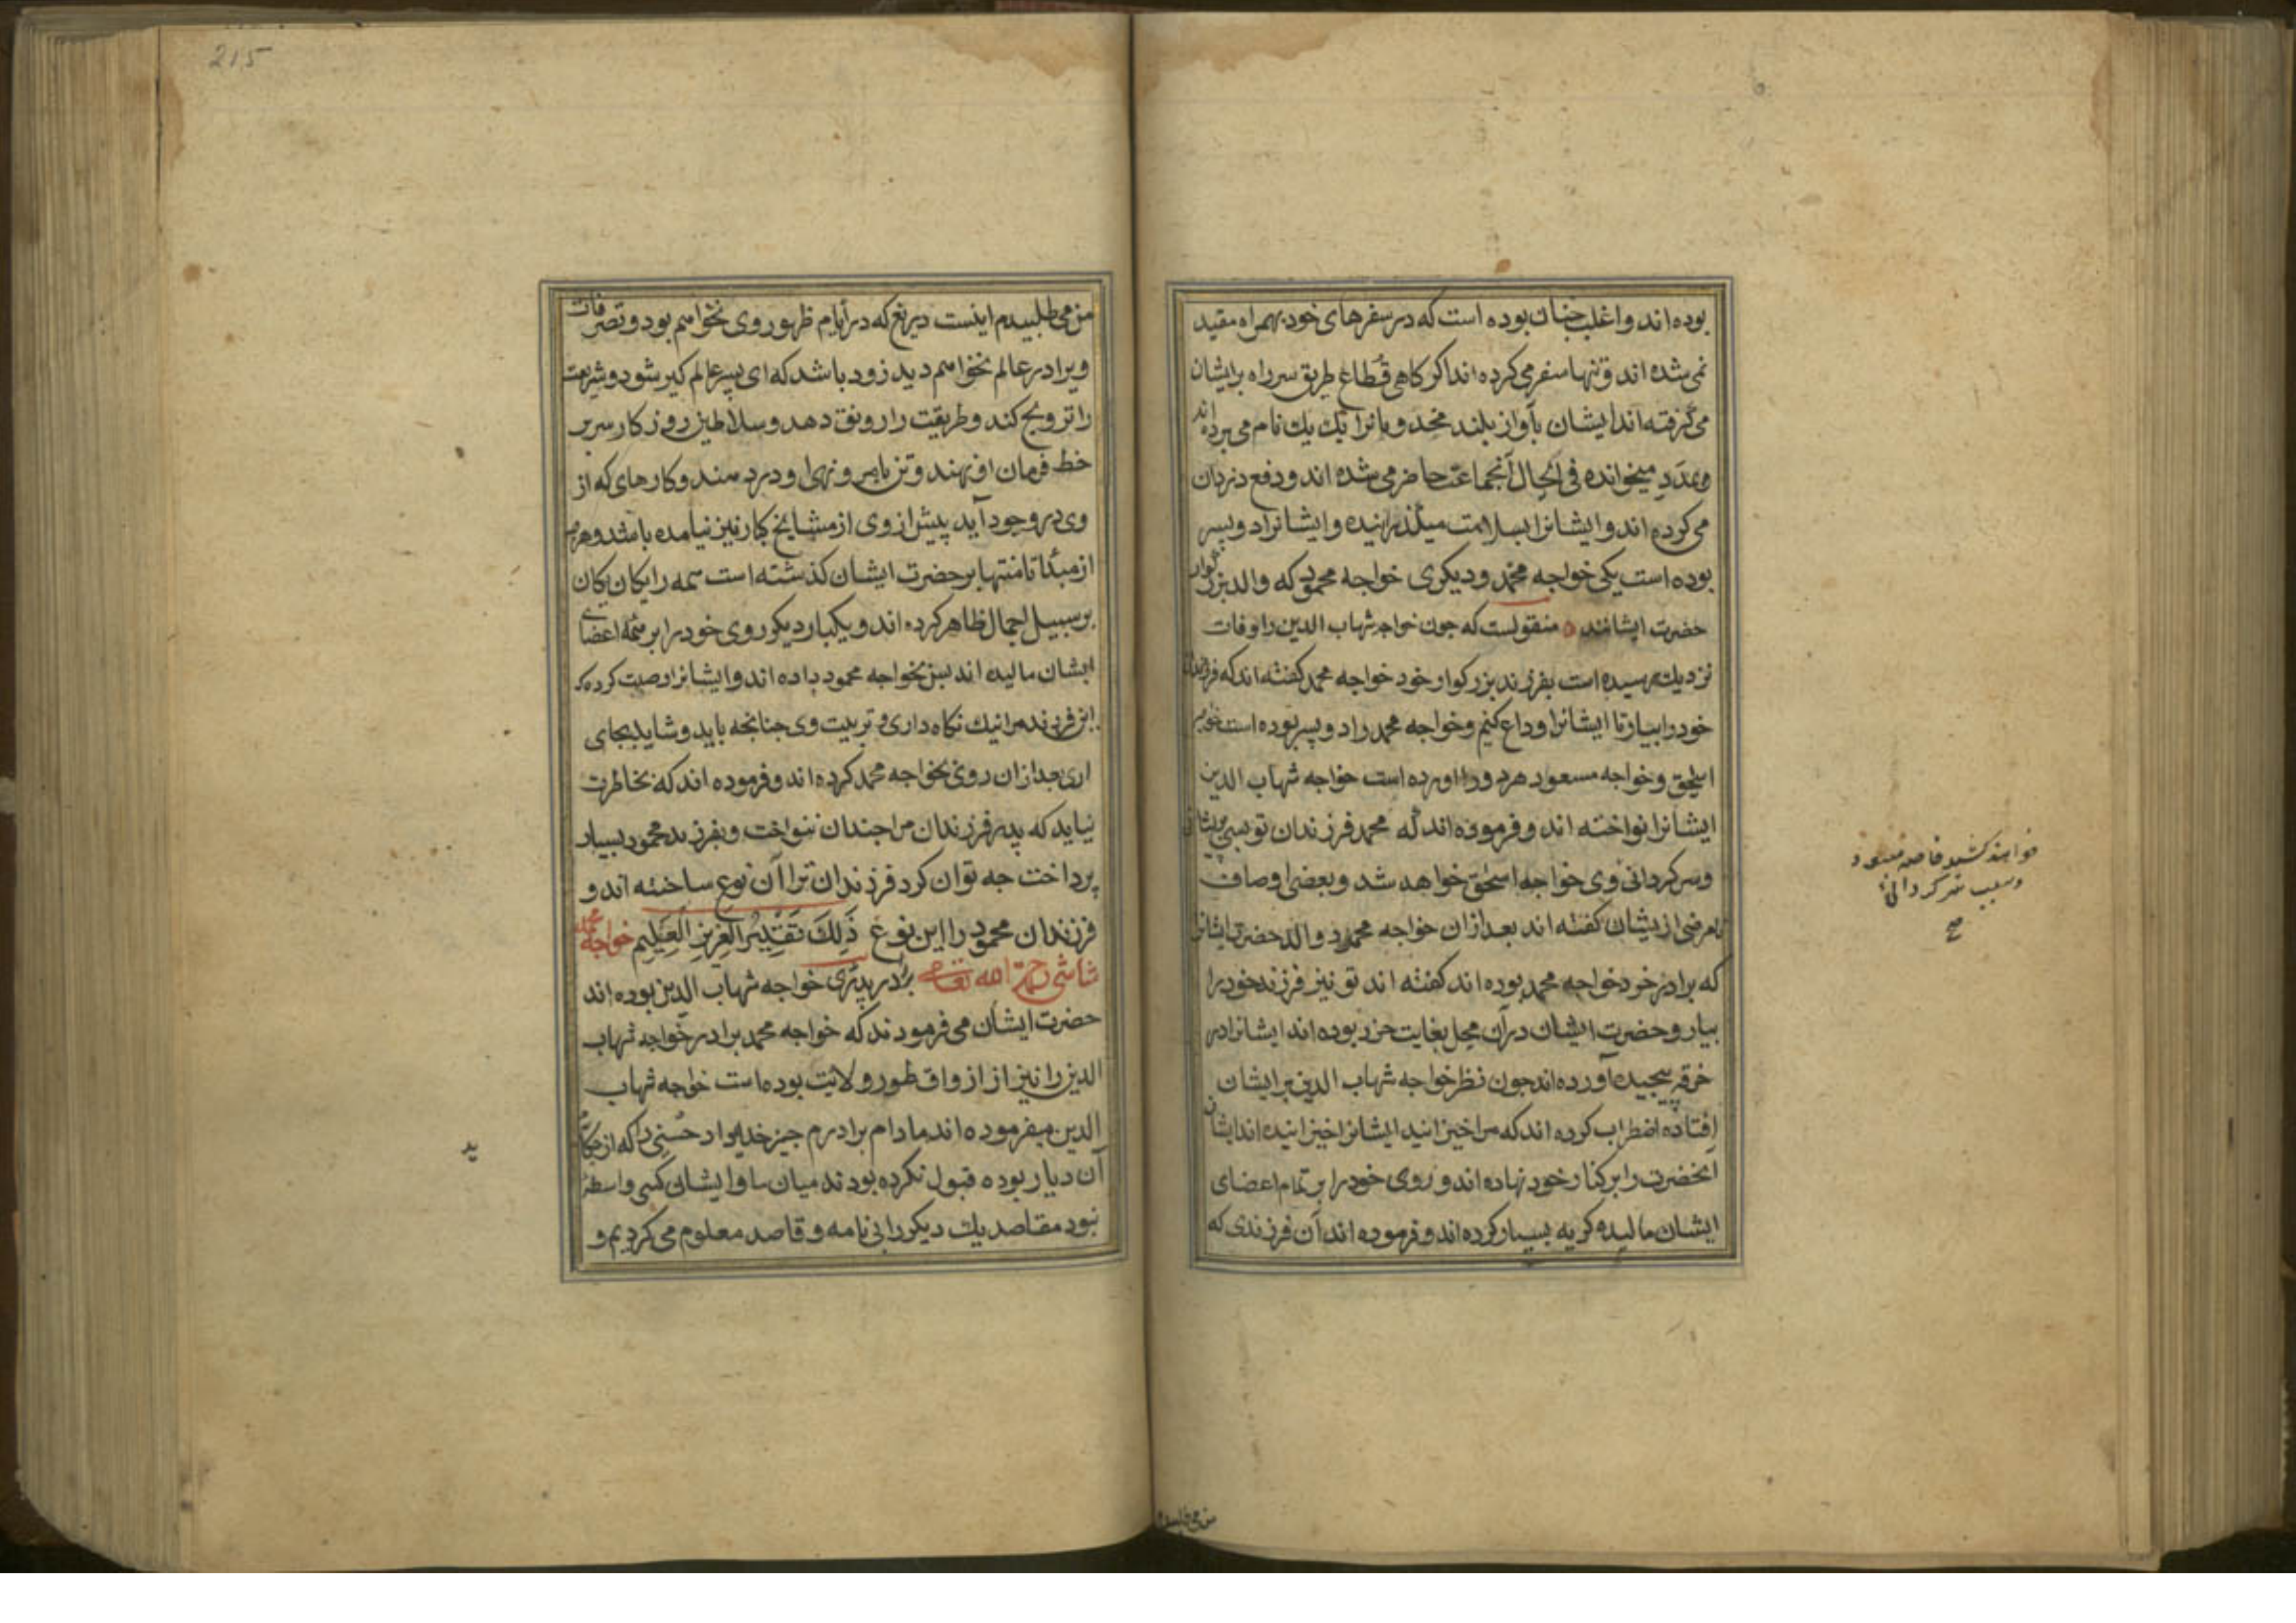 بوده اند و اغلب چنان بوده است که در سفرهای خود بهمراه مقید
نمی شده اند و تنها سفر می کرده اند اگر کاهی قطاع طریق سر راه بر ایشان
می گرفته اند ایشان بآواز بلند یک یک نام می برده اند
و بمدد میخوانده فی الحال آنجماعت حاضر می شده اند و دفع دزدان
می کرده اند و ایشانرا بسلامت میکذرانیده و ایشانرا دو پسر
بوده است یکی خواجه محمد و دیکری خواجه محمود که والد بزرکوار
حضرت ایشانند منقولست که چون خواجه شهاب الدین را وفات
نزدیک رسیده است بفرزند بزرکوار خود خواجه محمد کفته اند که فرزندان
خود را بیار تا ایشانرا وداع کنیم و خواجه محمد را دو پسر بوده است خواجه
اسحق و خواجه مسعود هر دو را آورده است خواجه شهاب الدین
ایشانرا نواخته اند و فرموده اند که محمد فرزندان تو بسی پریشانی
و سرکردانی وی خواجه اسحق خواهد شد و بعضی اوصاف
نامرضی از یشان کفته اند بعد ازان خواجه محمود والد حضرت ایشانرا
که برادر خرد خواجه محمد بوده اند کفته اند تو نیز فرزند خود را
بیار و حضرت ایشان در آن محل بغایت خرد بوده اند ایشانرا در
خرقه پیچیده آورده اند چون نظر خواجه شهاب الدین بر ایشان
افتاده اضطراب کرده اند که مرا خیزانید ایشانرا خیزانیده اند ایشان
آنحضرت را بر کنار خود نهاده اند و روی خود را بر تمام اعضای
ایشان مالیده کریه بسیار کرده اند و فرموده اند آن فرزندی که
خواهند کشید خاصه مسعود
و سبب سرکردانی
صح
من می طلبیدم
215
من می طلبیدم اینست دریغ که در ایام ظهور وی نخواهم بود و تصرفات
ویرا در عالم نخواهم دید زود باشد که ای پسر عالم کیر شود و شریعت
را ترویج کند و طریقت را رونق دهد و سلاطین روزکار سر بر
خط فرمان او نهند و تن بامر و نهی او در دهند و کارهای که از
وی در وجود آید پیش از وی از مشایخ کبار نیز نیامده باشد و هرچه
از مبدأ تا منتها بر حضرت ایشان کذشته است همه را یکان یکان
بر سبیل اجمال ظاهر کرده اند و یکبار دیکر روی خود را بر همه اعضای
ایشان مالیده اند پس بخواجه محمود داده اند و ایشانرا وصیت کرده که
این فرزند مرا نیک نکاه داری و تربیت وی چنانچه باید و شاید بجای
آری بعد ازان روی بخواجه محمد کرده اند و فرموده اند که بخاطرت
نیاید که پدر فرزندان مرا چندان ننواخت و بفرزند محمود بسیار
پرداخت چه توان کرد فرزندان ترا آن نوع ساخته اند و
فرزندان محمود را این نوع ذَلِكَ تَقْدِيرُ الْعَزِيزِ الْعَلِيمِ خواجه محمد
شاشی رحمة الله تعالی برادر پدری خواجه شهاب الدین بوده اند
حضرت ایشان می فرمودند که خواجه محمد برادر خواجه شهاب
الدین را نیز از اذواق طور ولایت بوده است خواجه شهاب
الدین میفرموده اند مادام برادرم چیز که از حکام
آن دیار بوده قبول نکرده بودند میان ما و ایشان کسی واسطه
نبود مقاصد یک دیکر را بی نامه و قاصد معلوم می کردیم و
ید